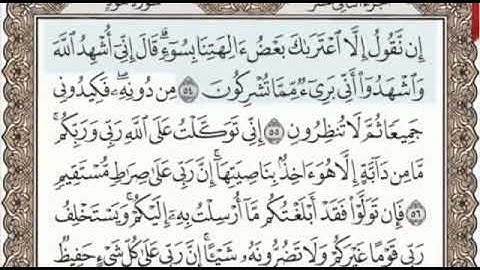 إِن نَّقُولُ إِلَّا ٱعْتَرَىٰكَ بَعْضُ ءَالِهَتِنَا بِسُوٓءٍ ۗ قَالَ إِنِّىٓ أُشْهِدُ ٱللَّهَ
وَٱشْهَدُوٓا۟ أَنِّى بَرِىٓءٌ مِّمَّا تُشْرِكُونَ ٥٤ مِن دُونِهِۦ ۖ فَكِيدُونِى
جَمِيعًا ثُمَّ لَا تُنظِرُونِ ٥٥ إِنِّى تَوَكَّلْتُ عَلَى ٱللَّهِ رَبِّى وَرَبِّكُم ۚ
مَّا مِن دَآبَّةٍ إِلَّا هُوَ ءَاخِذٌۢ بِنَاصِيَتِهَآ ۚ إِنَّ رَبِّى عَلَىٰ صِرَٰطٍ مُّسْتَقِيمٍ
٥٦ فَإِن تَوَلَّوْا۟ فَقَدْ أَبْلَغْتُكُم مَّآ أُرْسِلْتُ بِهِۦٓ إِلَيْكُمْ ۚ وَيَسْتَخْلِفُ
رَبِّى قَوْمًا غَيْرَكُمْ وَلَا تَضُرُّونَهُۥ شَيْـًٔا ۚ إِنَّ رَبِّى عَلَىٰ كُلِّ شَىْءٍ حَفِيظٌ